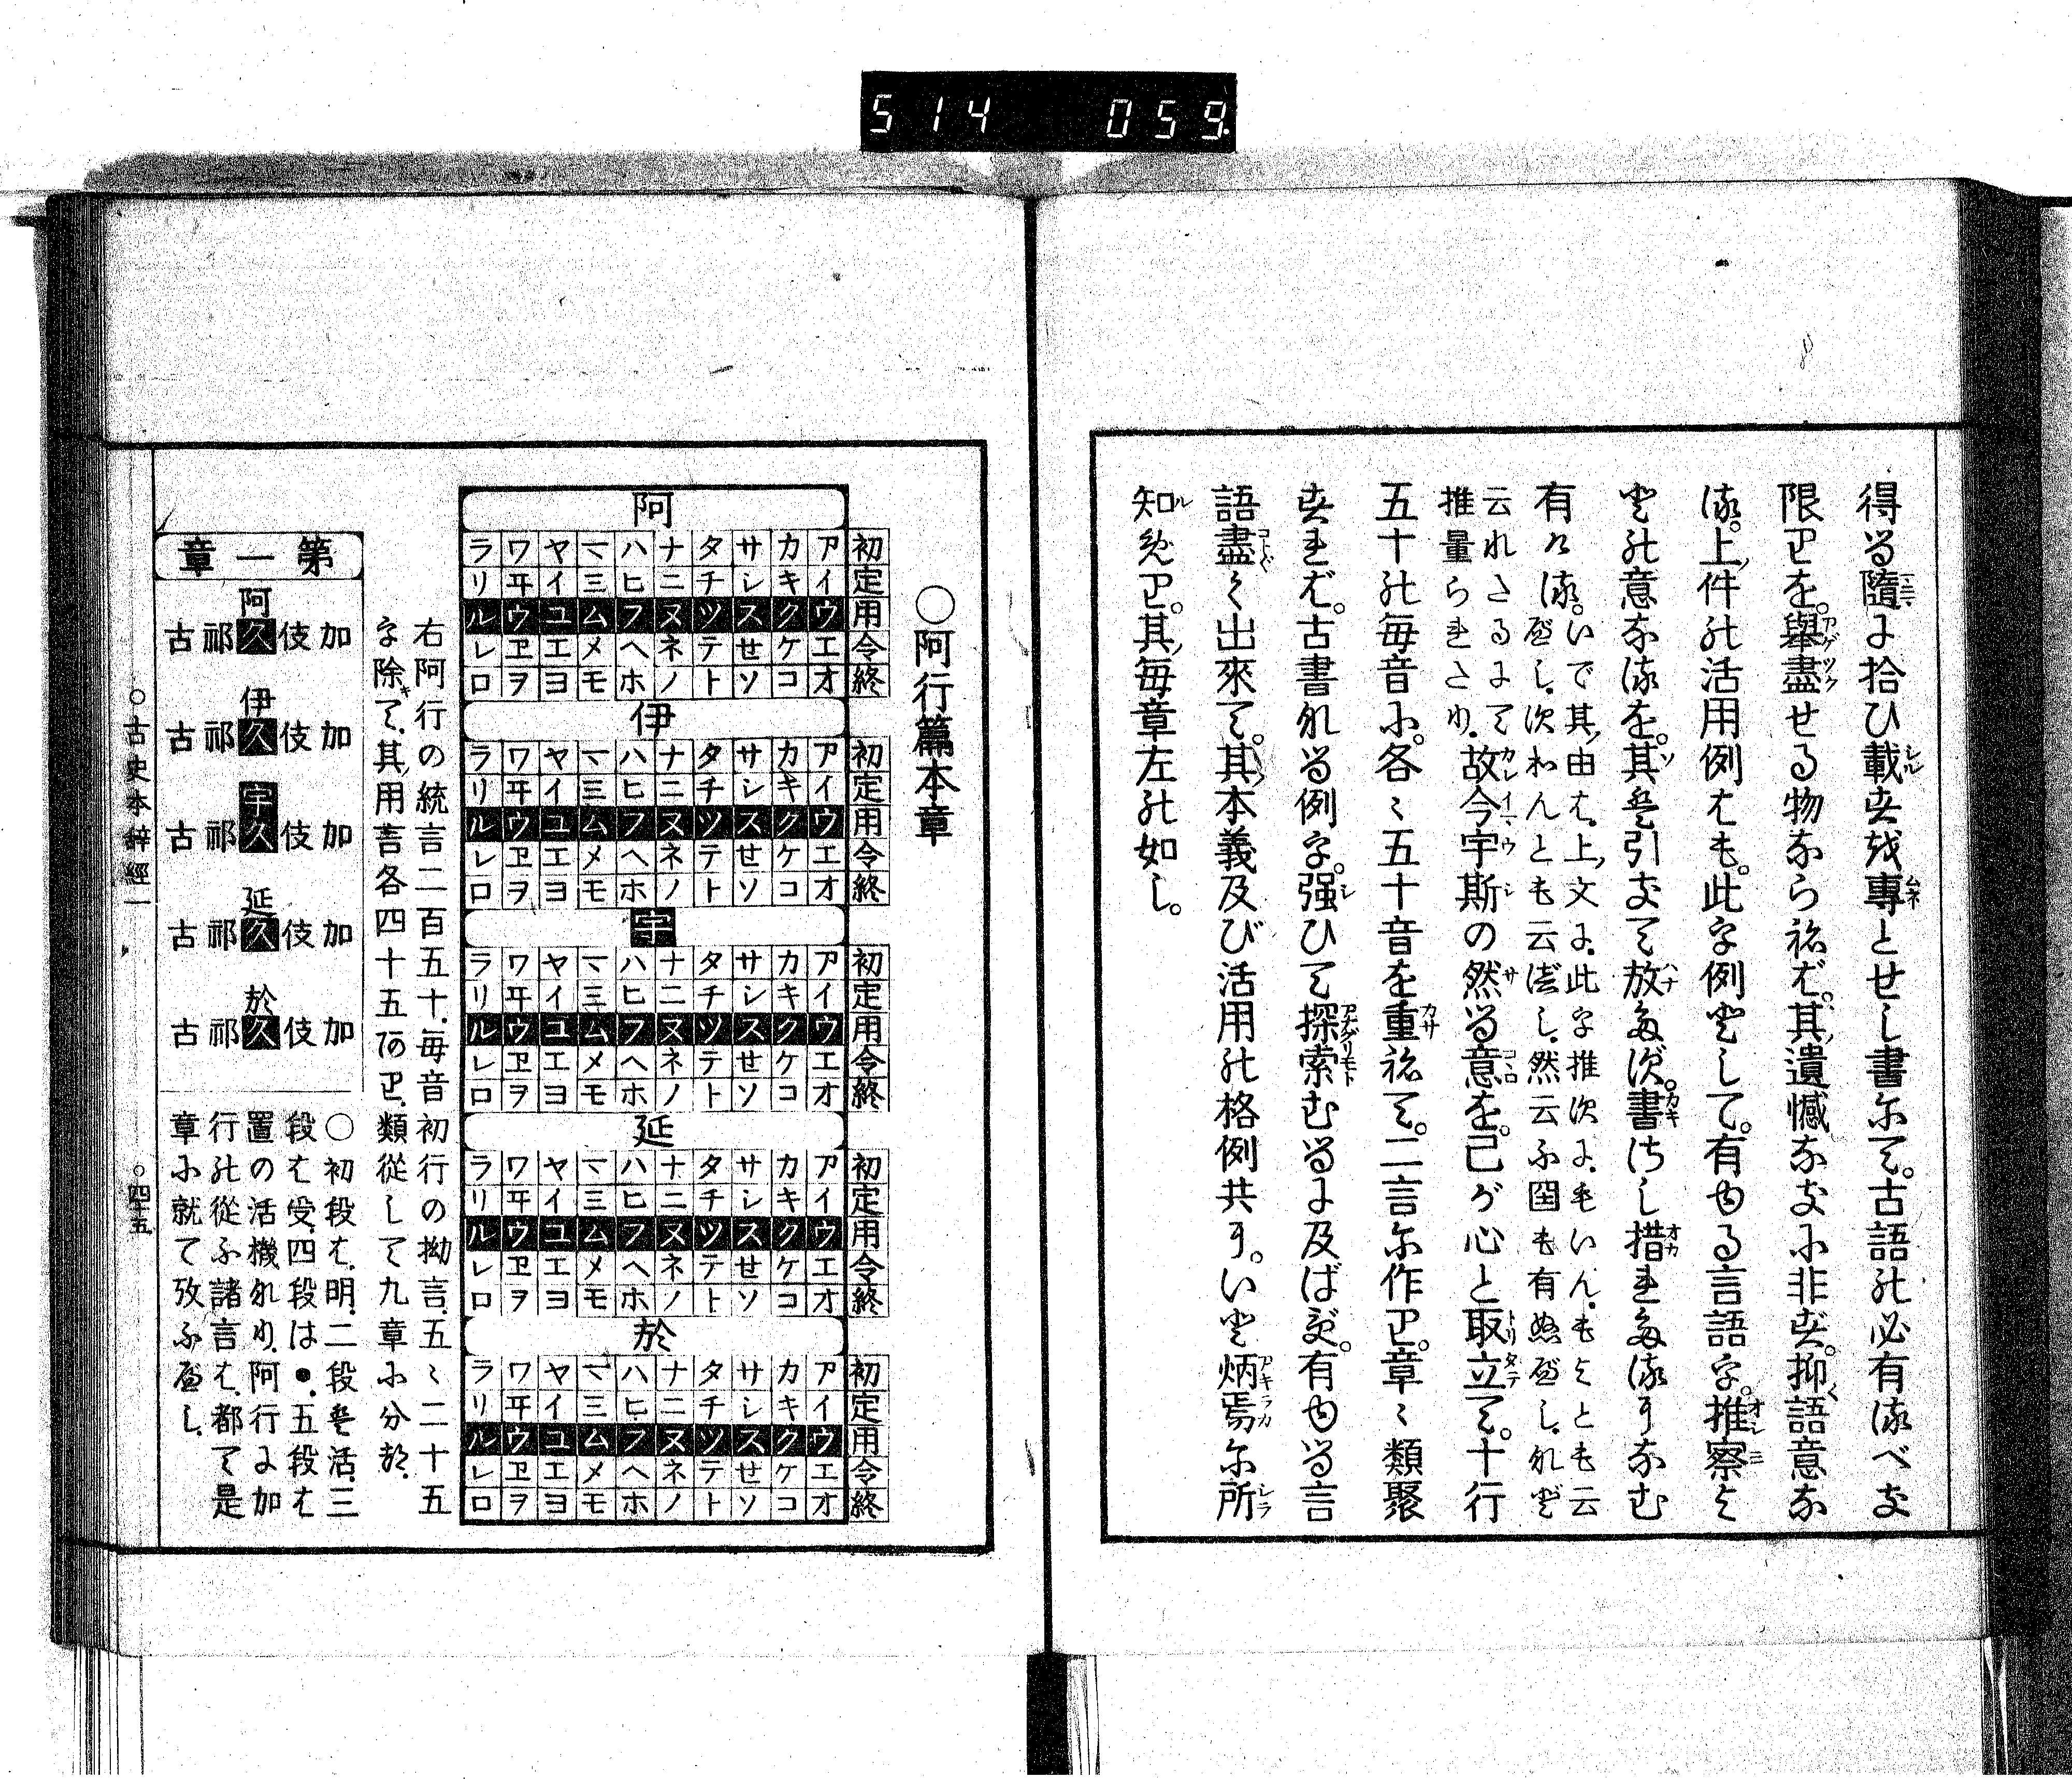 514 059.
得る隨に拾ひ載せるを專とせし書にて。古語の必有るべき
限りを。擧盡せる物ならねば。其遺憾なきに非ず。抑語意な
る。上件の活用例はも。此字例として。有ゆる言語を。推察と
の意なるを。其は引きて放たず。書さし措れたるりなむ
有ける。いで其由は上文に。此字推次に。もいん。もとも云
べし。次わんとも云べし。然云ふ固も有ぬべし。れど
云れさるにて
推量られたり。故今宇斯の然る意を。己が心と取立て。十行
五十の毎音に。各〻五十音を重ねて。二言に作り。章〻類聚
すれば。古書れる例を。强ひて探索むるに及ばず。有ゆる言
語盡く出來て。其本義及び活用の格例共り。いと炳焉に所
知たり。其毎章左の如し。
○阿行篇本章
阿
初 ア カ サ タ ナ ハ マ ヤ ワ ラ
定 イ キ シ チ ニ ヒ ミ イ ヰ リ
用 ウ ク ス ツ ヌ フ ム ユ ウ ル
令 エ ケ セ テ ネ ヘ メ エ ヱ レ
終 オ コ ソ ト ノ ホ モ ヨ ヲ ロ
伊
初 ア カ サ タ ナ ハ マ ヤ ワ ラ
定 イ キ シ チ ニ ヒ ミ イ ヰ リ
用 ウ ク ス ツ ヌ フ ム ユ ウ ル
令 エ ケ セ テ ネ ヘ メ エ ヱ レ
終 オ コ ソ ト ノ ホ モ ヨ ヲ ロ
宇
初 ア カ サ タ ナ ハ マ ヤ ワ ラ
定 イ キ シ チ ニ ヒ ミ イ ヰ リ
用 ウ ク ス ツ ヌ フ ム ユ ウ ル
令 エ ケ セ テ ネ ヘ メ エ ヱ レ
終 オ コ ソ ト ノ ホ モ ヨ ヲ ロ
延
初 ア カ サ タ ナ ハ マ ヤ ワ ラ
定 イ キ シ チ ニ ヒ ミ イ ヰ リ
用 ウ ク ス ツ ヌ フ ム ユ ウ ル
令 エ ケ セ テ ネ ヘ メ エ ヱ レ
終 オ コ ソ ト ノ ホ モ ヨ ヲ ロ
於
初 ア カ サ タ ナ ハ マ ヤ ワ ラ
定 イ キ シ チ ニ ヒ ミ イ ヰ リ
用 ウ ク ス ツ ヌ フ ム ユ ウ ル
令 エ ケ セ テ ネ ヘ メ エ ヱ レ
終 オ コ ソ ト ノ ホ モ ヨ ヲ ロ
右阿行の統言二百五十。毎音初行の拗言。五〻二十五
を除きて。其用言各四十五あり。類從して九章に分つ。
第一章
阿
加 伎 久 祁 古
伊
加 伎 久 祁 古
宇
加 伎 久 祁 古
延
加 伎 久 祁 古
於
加 伎 久 祁 古
○初段は。明。二段は活。三
段は受。四段は●。五段は
置の活機れり。阿行に加
行の從ふ諸言は。都て是
章に就て攷ふべし。
○古史本辭經一
○四十五